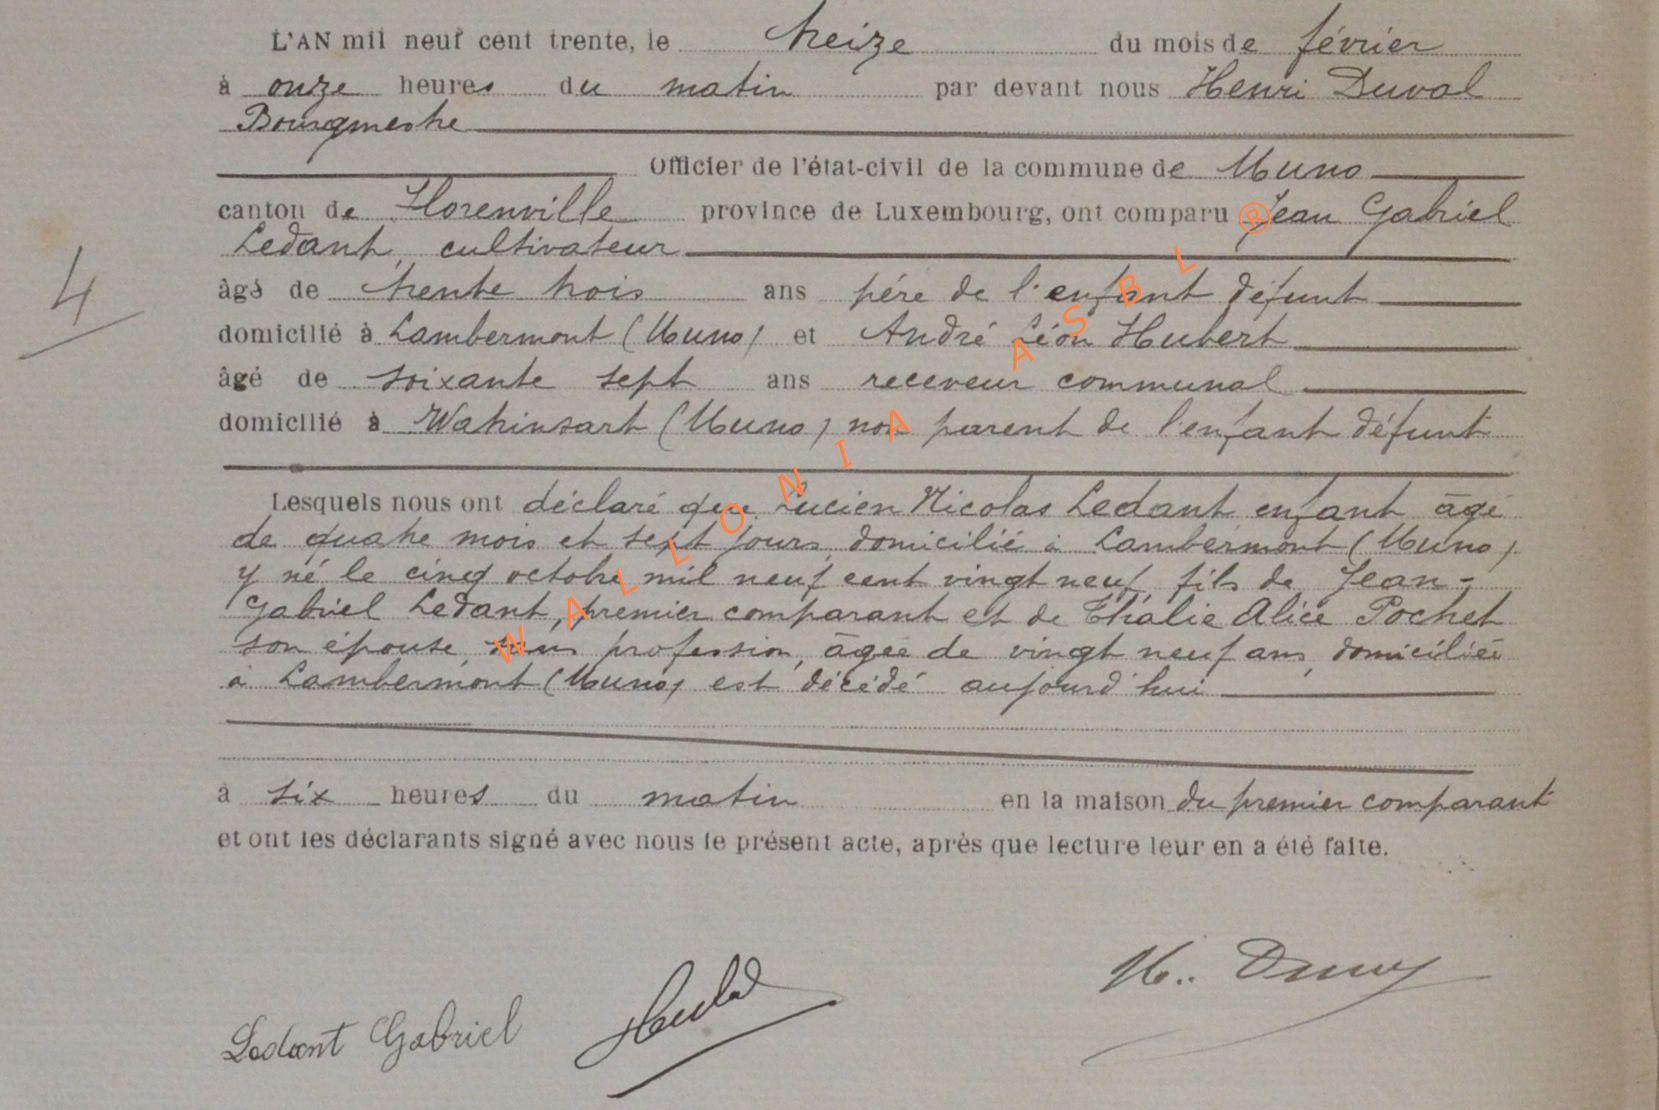 L'AN mil neuf cent trente, le treize du mois de février
à onze heures du matin par devant nous Henri Duval
Bourgmestre
Officier de l'état-civil de la commune de Muno
canton de Florenville province de Luxembourg, ont comparu Jean Gabriel
Ledant, cultivateur
âgé de trente trois ans père de l'enfant défunt
domicilié à Lambermont (Muno) et André Léon Hubert
âgé de soixante sept ans receveur communal
domicilié à Watrinsart (Muno) non parent de l'enfant défunt
4
Lesquels nous ont déclaré que Lucien Nicolas Ledant enfant âgé
de quatre mois et sept jours domicilié à Lambermont (Muno)
y né le cinq octobre mil neuf cent vingt neuf, fils de Jean-
Gabriel Ledant, premier comparant et de Thalie Alice Pochet
son épouse, sans profession, âgée de vingt neuf ans, domiciliée
à Lambermont (Muno) est décédé aujourd'hui
à six heures du matin en la maison du premier comparant
et ont les déclarants signé avec nous le présent acte, après que lecture leur en a été faite.
Ledant Gabriel
WALLONIA ASBL ®